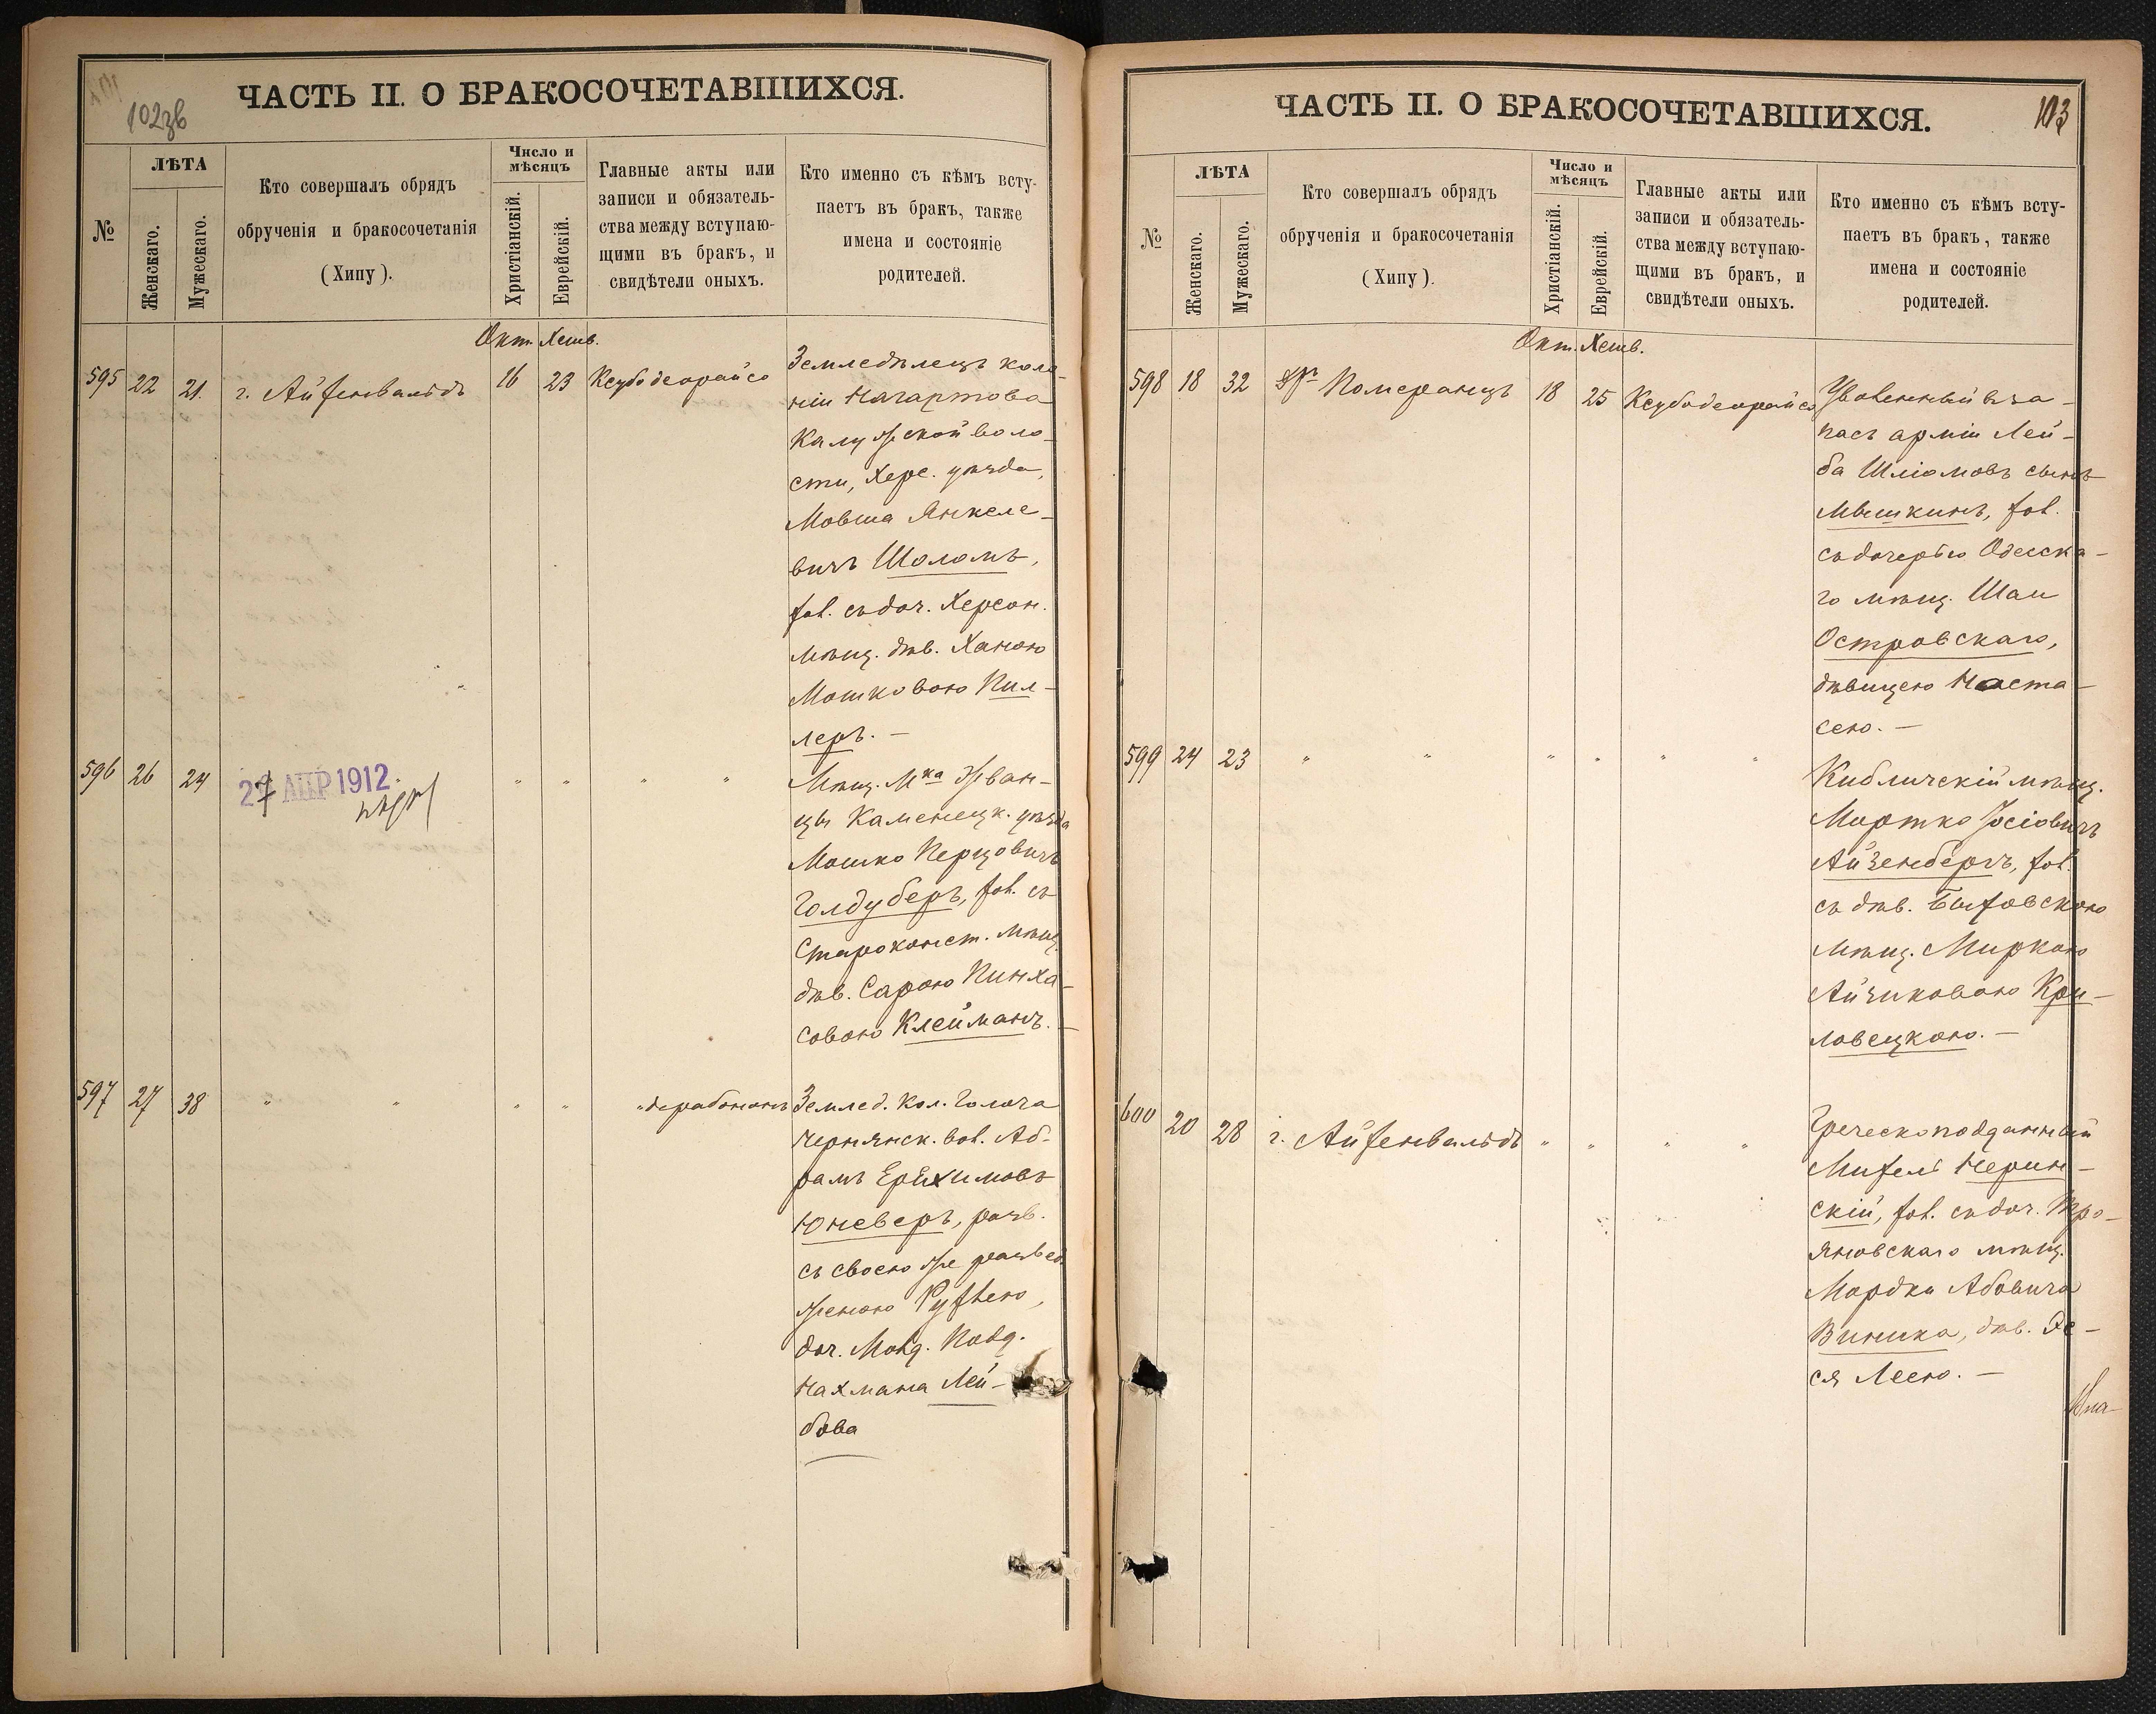 ЧАСТЬ II. О БРАКОСОЧЕТАВШИХСЯ.
102зв
№
ЛѢТА
Женскаго.
Мужескаго.
Кто совершалъ обрядъ
обрученія и бракосочетанія
(Хипу).
Число и
мѣсяцъ
Христіанскій.
Еврейскій.
Главные акты или
записи и обязатель-
ства между вступаю-
щими въ бракъ, и
свидѣтели оныхъ.
Кто именно съ кѣмъ всту-
паетъ въ бракъ, также
имена и состояніе
родителей.
Окт. Хешв.
595 22 21. г. Айзенвальдъ 16 23 Ксубодеорайсо
Земледѣлецъ коло-
ніи Нагартова
Калужской воло-
сти, Херс. уѣзда,
Мовша Янкеле-
вичъ Шоломъ,
хол. съ доч. Херсон.
мѣщ. дѣв. Ханою
Мошковою Пил-
леръ. –
596 26 24 " " " "
27 АПР 1912
Мѣщ. Мка Жван-
цы Каменецк. уѣзда
Мошко Перцовичъ
Голдуберъ, хол. съ
Староконст. мѣщ.
дѣв. Сарою Пинха-
совою Клейманъ. –
597 27 38 " " " " " дерабононъ
Землед. кол.
Чернянск. вол. Аб-
рамъ Ерихимовъ
Юневеръ, разв.
съ своею же развед.
женою Рухлею,
доч. Молд. подд.
Нахмана Лей-
бова
ЧАСТЬ II. О БРАКОСОЧЕТАВШИХСЯ.
103
№
ЛѢТА
Женскаго.
Мужескаго.
Кто совершалъ обрядъ
обрученія и бракосочетанія
(Хипу).
Число и
мѣсяцъ
Христіанскій.
Еврейскій.
Главные акты или
записи и обязатель-
ства между вступаю-
щими въ бракъ, и
свидѣтели оныхъ.
Кто именно съ кѣмъ всту-
паетъ въ бракъ, также
имена и состояніе
родителей.
Окт. Хешв.
598 18 32 Померанцъ 18 25 Ксубодеорайсо
Уволенный въ за-
пасъ арміи Лей-
ба Шліомовъ сынъ
Мышкинъ, хол.
съ дочерью Одесска-
го мѣщ. Шаи
Островскаго,
дѣвицею Наста-
сею. –
599 24 23 " " " " " "
Кибличскій мѣщ.
Мортко Іосіовичъ
Айзенбергъ, хол.
съ дѣв.
мѣщ. Миркою
Айзиковою Кри-
ловецкою. –
600 20 28 г. Айзенвальдъ " " " "
Греческоподданный
Михель Черин-
скій, хол. съ доч. Тро-
яновскаго мѣщ.
Мордки Абовича
Винника, дѣв. Эс-
ся Леею. –